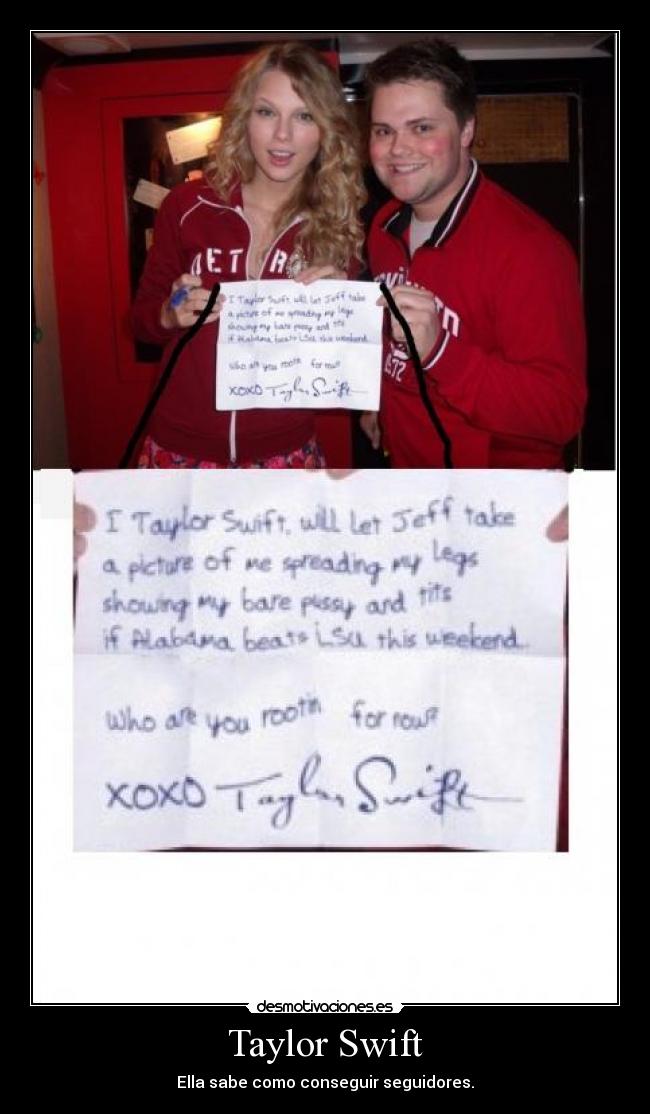 DET R
I Taylor Swift, will let Jeff take
a picture of me spreading my legs
showing my bare pussy and tits
if Alabama beats LSU this weekend.
Who are you rootin for now?
XOXO Taylor Swift
I Taylor Swift, will let Jeff take
a picture of me spreading my legs
showing my bare pussy and tits
if Alabama beats LSU this weekend.
Who are you rootin for now?
XOXO Taylor Swift
desmotivaciones.es
Taylor Swift
Ella sabe como conseguir seguidores.